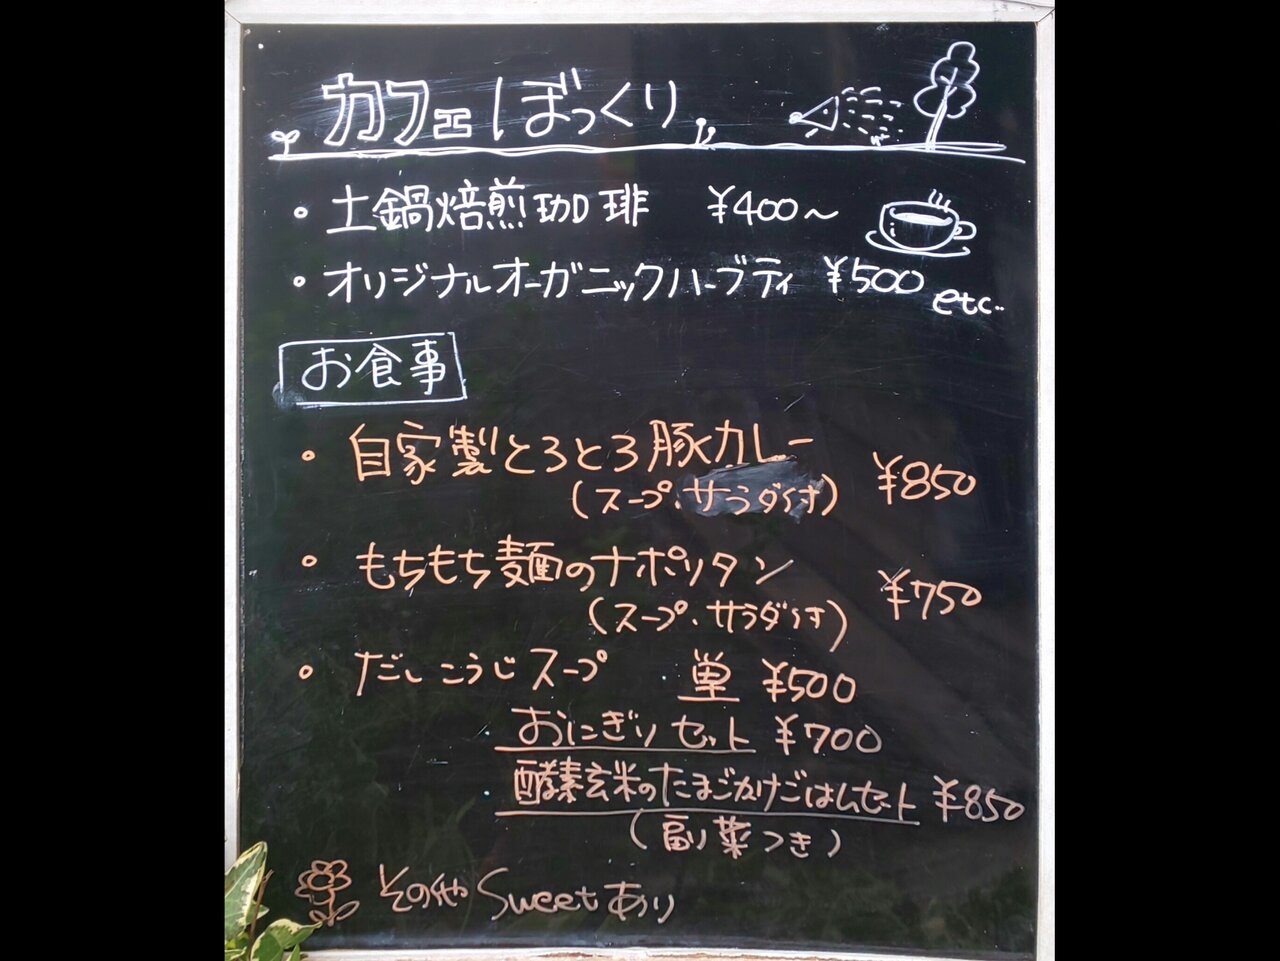 カフェ ぼっくり
・土鍋焙煎珈琲 ¥400～
・オリジナルオーガニックハーブティ ¥500 etc..
お食事
・自家製とろとろ豚カレー ¥850
(スープ、サラダ付)
・もちもち麺のナポリタン ¥750
(スープ、サラダ付)
・だしこうじスープ 単 ¥500
・おにぎりセット ¥700
・酵素玄米のたまごかけごはんセット ¥850
(副菜つき)
その他 Sweet あり